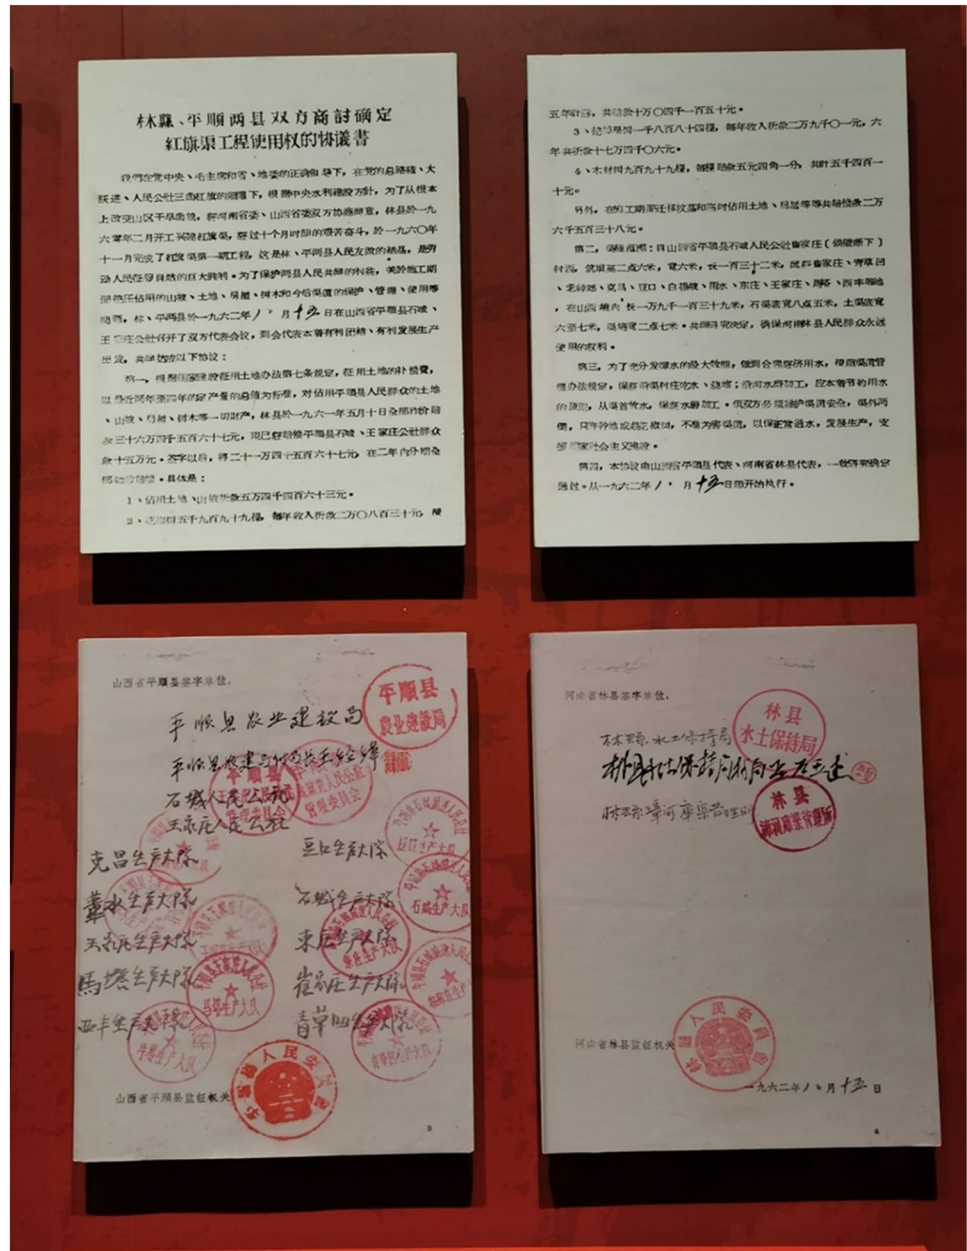 林縣、平順两县双方商討确定
紅旗渠工程使用权的协議書
我們在党中央、毛主席和省、地委的正确領导下，在党的总路綫、大
跃进、人民公社三面紅旗的照耀下，根据中央水利建設方針，为了从根本
上改变山区干旱面貌，經河南省委、山西省委双方协商同意，林县於一九
六零年二月开工兴建紅旗渠，經过十个月时間的艰苦奋斗，於一九六〇年
十一月完成了紅旗渠第一期工程，这是林、平两县人民友誼的結晶，是劳
动人民征服自然的巨大胜利。为了保护两县人民共同的利益，关於施工期
間挖压佔用的山坡、土地、房屋、树木和今后渠道的保护、管理、使用等
問題，林、平两县於一九六二年八月十五日在山西省平順县石城、
王家庄公社召开了双方代表会议，到会代表本着有利团結、有利发展生产
出发，共同达成以下协议：
第一，根据国家建設征用土地办法第七条規定，征用土地的补偿費，
以最近两年至四年的定产量的总值为标准，对佔用平順县人民群众的土地
、山坡、房屋、树木等一切財产，林县於一九六一年五月十日全部作价賠
款三十六万四千五百六十七元，現已賠偿平順县石城、王家庄公社群众
款十五万元。签字以后，将二十一万四千五百六十七元，在二年內分期全
部。具体是：
1、佔用土地、山坡折款五万四千四百六十三元。
2、树五千九百九十九棵，每年收入折款二万〇八百三十元，按
五年計算，共賠款十万〇四千一百五十元。
3、一千八百八十四棵，每年收入折款二万九千〇一元，六
年共折款十七万四千〇六元。
4、木材树九百九十九棵，每棵賠款五元四角一分，共計五千四百一
十元。
另外，在施工期間迁移坟墓和当时佔用土地、房屋等等共賠偿款二万
六千五百三十八元。
第二，渠綫范围：自山西省平順县石城人民公社崔家庄（侯壁断下）
村西，筑坝高二点六米，寬六米，长一百三十二米，流經崔家庄、青草凹
、老神郊、克昌、豆口、白楊坡、雨水、东庄、王家庄、馬塔、西丰等地
，在山西境內长一万九千一百三十九米，石渠底寬八点五米，土渠底寬
六至七米，渠墙寬二点七米。共同研究决定，确保河南林县人民群众永远
使用的权利。
第三，为了充分发揮水的最大效益，做到合理經济用水，按照渠道管
理办法規定，保証沿渠村庄吃水、澆地；沿河水磨加工，应本着节約用水
的原則，从渠首放水，保証水磨加工。但双方必須維护渠道安全，渠外两
側，只准种地或植花椒树，不准为害渠道，以保正常通水，发展生产，支
援国家社会主义建設。
第四，本协议由山西省平順县代表、河南省林县代表，一致研究确定
通过。从一九六二年八月十五日起开始执行。
山西省平順县签字单位：
平顺县农业建设局
平順县
农业建設局
石城人民公社
王家庄人民公社
克昌生产大队
豆口生产大队
蓑水生产大队
石城生产大队
王家庄生产大队
東庄生产大队
馬塔生产大队
崔家庄生产大队
西丰生产大队
青草凹生产大队
山西省平順县监征机关
3
河南省林县签字单位：
林县
水土保持局
林縣水土保持局
林縣漳河庫渠管理所
林县
河南省林县监征机关
一九六二年八月十五日
4